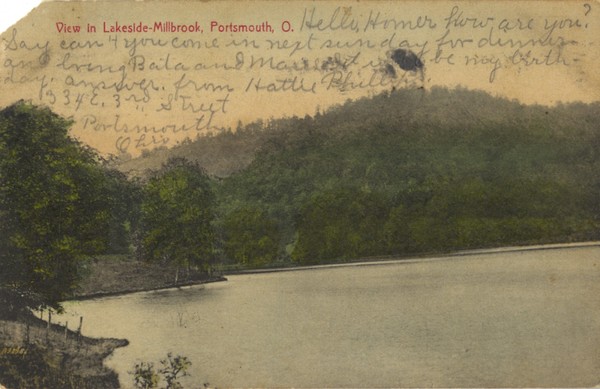 View in Lakeside-Millbrook, Portsmouth, O.
Hello, Homer how are you?
Say can't you come in next sunday for dinner
and bring and it will be my birth-
day. answer. from Hattie
334 E. 3rd Street
Portsmouth
Ohio